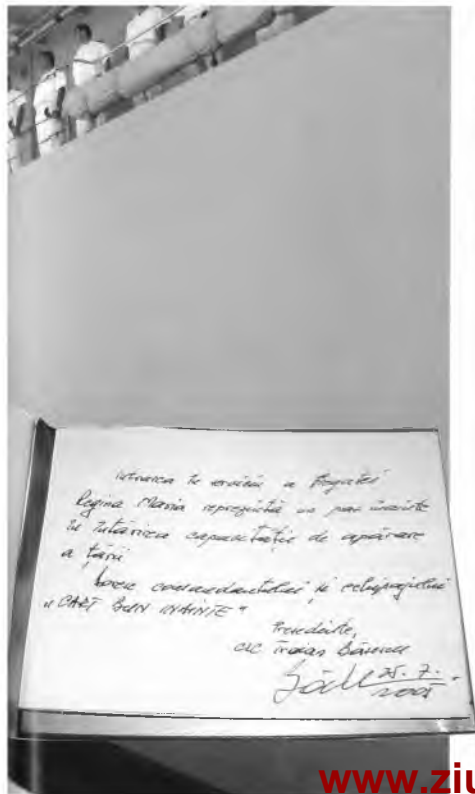 Intrarea în serviciu a Fregatei
Regina Maria reprezintă un pas înainte
în întărirea capacității de apărare
a țării
comandantului și echipajului
"CART BUN INAINTE"
Președinte,
Traian Băsescu
25.7.
2005
www.ziu